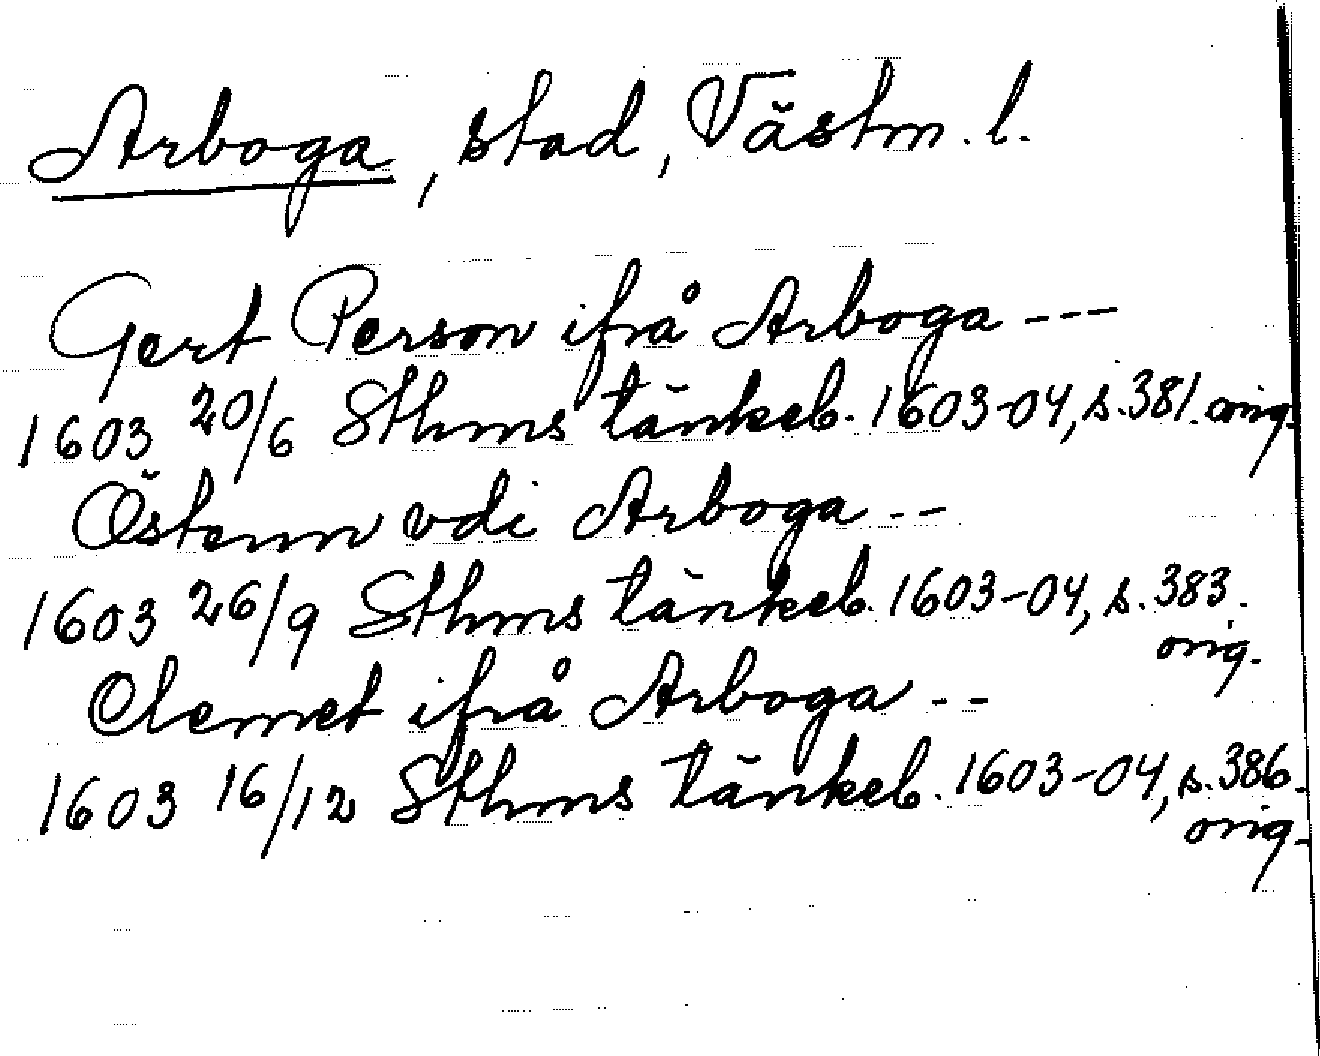 Arboga, stad, Västm. l.
Gert Person ifrå Arboga ---
1603 20/6 Sthms tänkeb. 1603-04, s. 381. orig.
Östenn vdi Arboga --
1603 26/9 Sthms tänkeb. 1603-04, s. 383.
orig.
Clemet ifrå Arboga --
1603 16/12 Sthms tänkeb. 1603-04, s. 386.
orig.